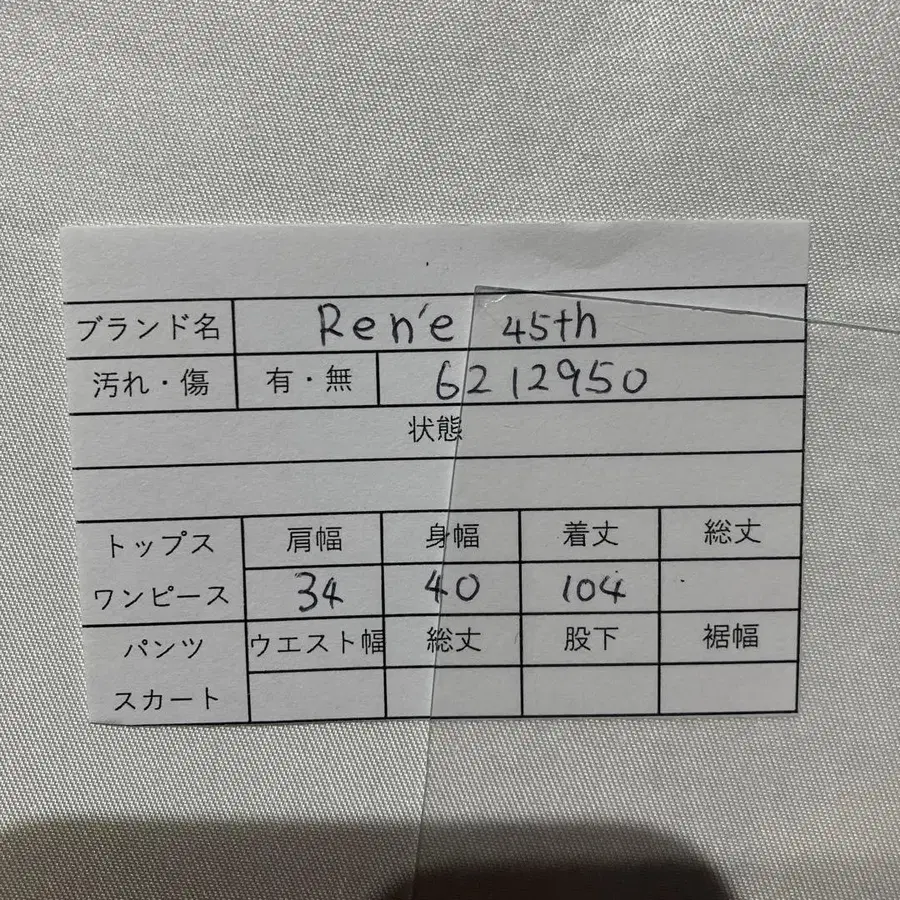 ブランド名 Ren'e 45th
汚れ・傷 有・無 6212950
状態
トップス 肩幅 身幅 着丈 総丈
ワンピース 34 40 104
パンツ ウエスト幅 総丈 股下 裾幅
スカート